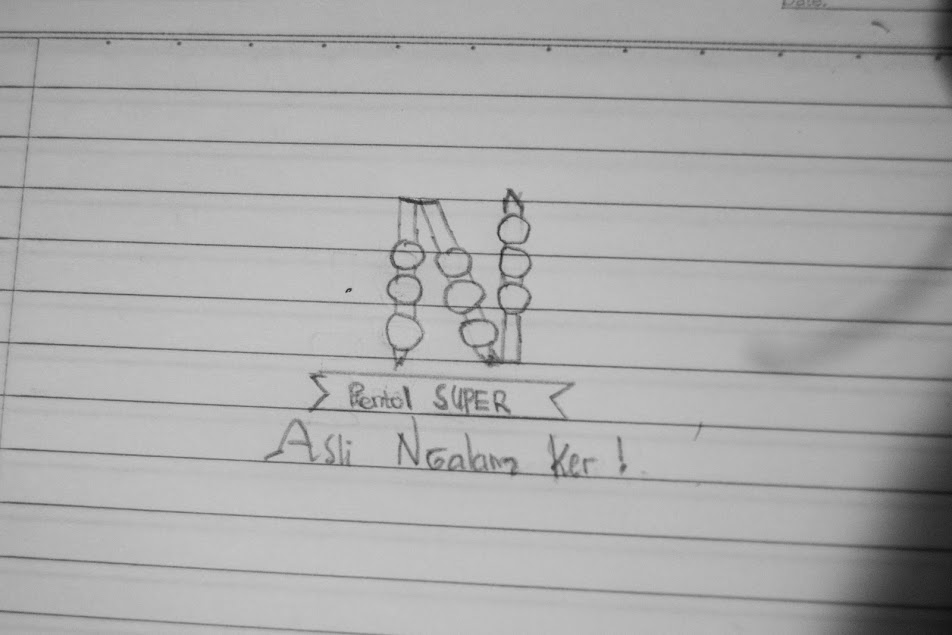 Date:
Pentol SUPER
Asli Ngalam Ker!